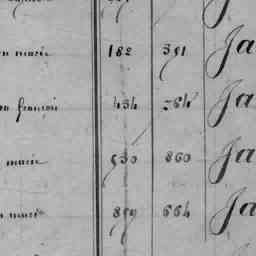 marie 182 391 Ja
françois 434 264 Ja
marie 530 860 Ja
marie 859 664 Ja